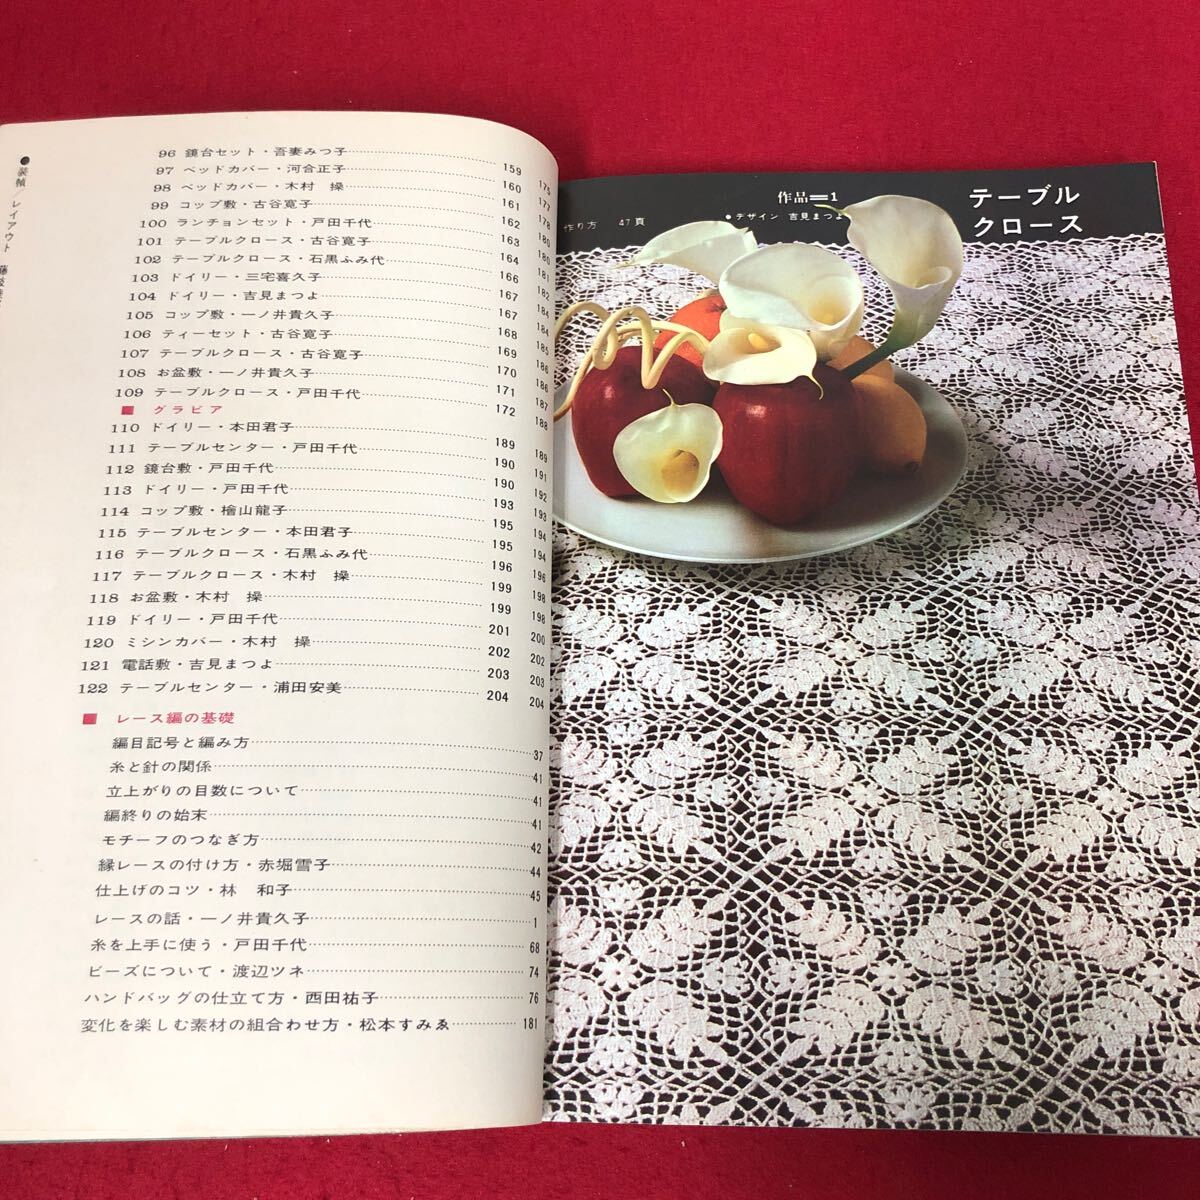 ●装幀／レイアウト
96 鏡台セット・吾妻みつ子 159 175
97 ベッドカバー・河合正子 160 177
98 ベッドカバー・木村　操 161 178
99 コップ敷・古谷寛子 162 180
100 ランチョンセット・戸田千代 163 180
101 テーブルクロース・古谷寛子 164 181
102 テーブルクロース・石黒ふみ代 166 182
103 ドイリー・三宅喜久子 167 184
104 ドイリー・吉見まつよ 167 184
105 コップ敷・一ノ井貴久子 168 185
106 ティーセット・古谷寛子 169 186
107 テーブルクロース・古谷寛子 170 186
108 お盆敷・一ノ井貴久子 171 187
109 テーブルクロース・戸田千代 172 188
■ グラビア
110 ドイリー・本田君子 189 189
111 テーブルセンター・戸田千代 190 191
112 鏡台敷・戸田千代 190 192
113 ドイリー・戸田千代 193 193
114 コップ敷・檜山龍子 195 194
115 テーブルセンター・本田君子 195 194
116 テーブルクロース・石黒ふみ代 196 196
117 テーブルクロース・木村　操 199 198
118 お盆敷・木村　操 199 198
119 ドイリー・戸田千代 201 200
120 ミシンカバー・木村　操 202 202
121 電話敷・吉見まつよ 203 203
122 テーブルセンター・浦田安美 204 204
■ レース編の基礎
編目記号と編み方 37
糸と針の関係 41
立上がりの目数について 41
編終りの始末 41
モチーフのつなぎ方 42
縁レースの付け方・赤堀雪子 44
仕上げのコツ・林　和子 45
レースの話・一ノ井貴久子 1
糸を上手に使う・戸田千代 68
ビーズについて・渡辺ツネ 74
ハンドバッグの仕立て方・西田祐子 76
変化を楽しむ素材の組合わせ方・松本すみゑ 181
テーブル
クロース
作品＝1
●デザイン 吉見まつよ
作り方　47頁